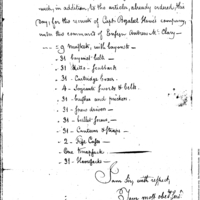 in addition, to the articles already ordered, this
Day, for the recruits of Capt. Bezaleel Howe's company,
under the command of Ensign Andrew McClary
9 muskets, with bayonets
31 bayonet belts
31 Ditto scabbards
31 Cartridge boxes
4 Serjeants swords & belts
31 brushes and prickers
31 screw drivers
31 bullet screws
31 Canteens & Straps
2 Fife Cases
One Knapsack
31 Haversacks
I am Sir, with respect,
Your most obed Servt